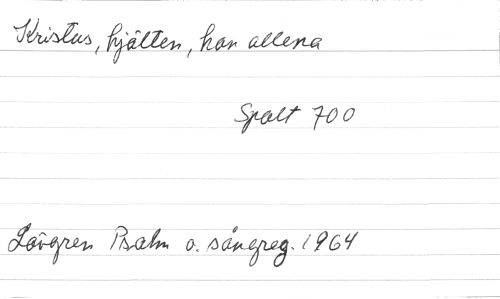 Kristus, hjälten, han allena
Spalt 700
Lövgren Psalm o. sångreg. 1964